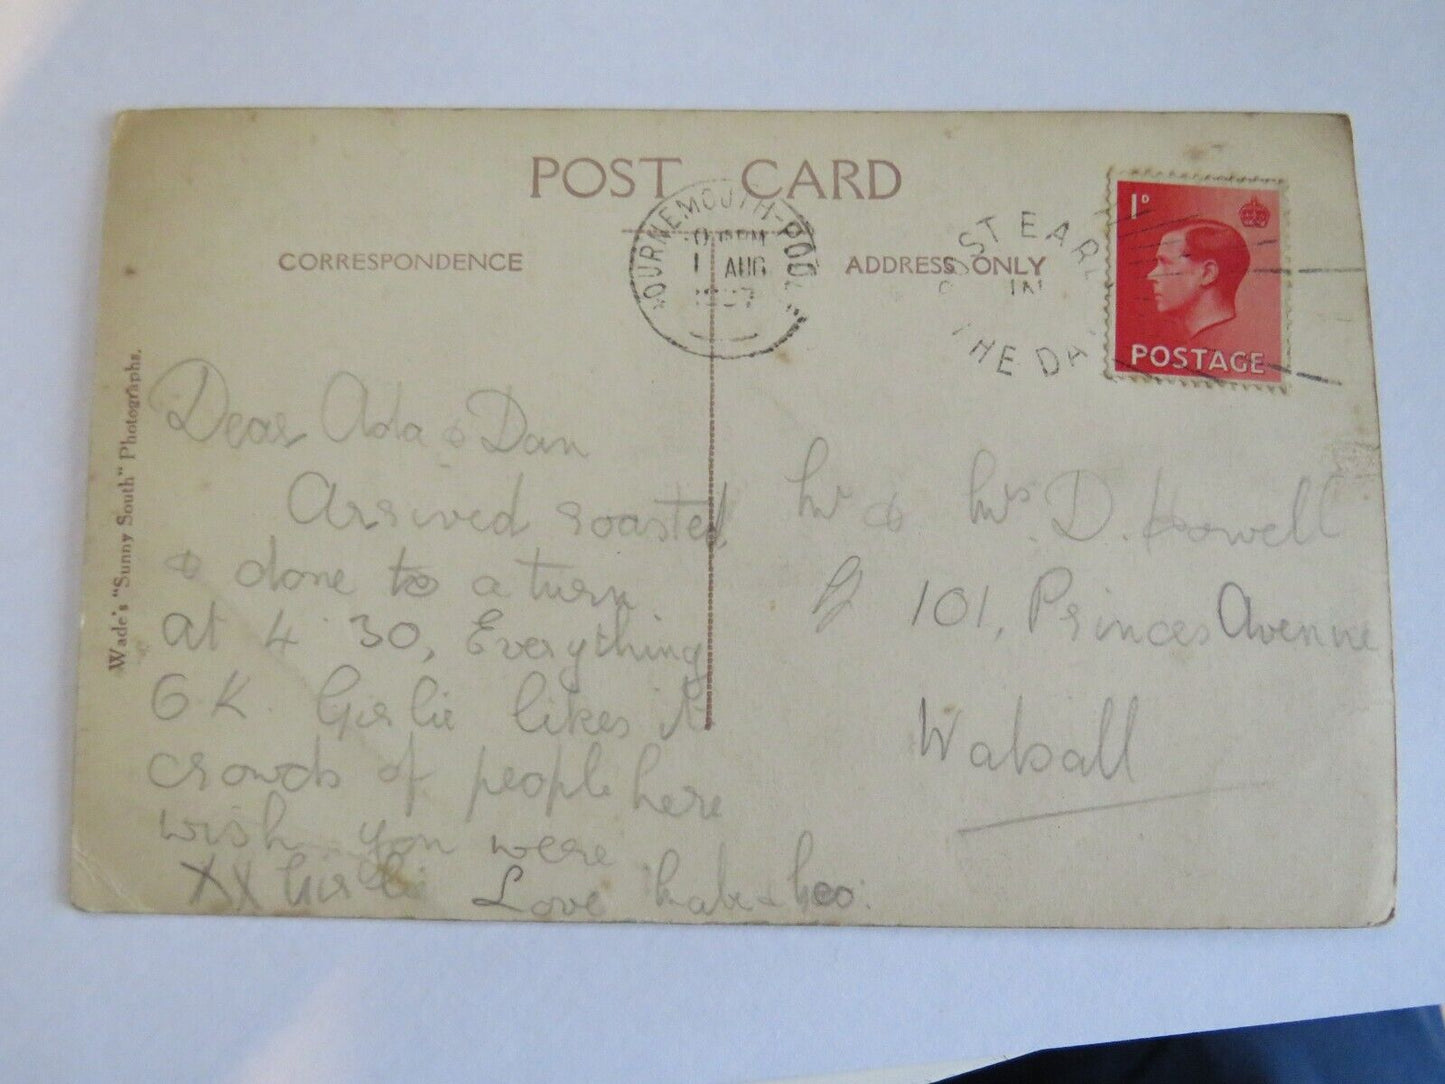 POST CARD
CORRESPONDENCE
ADDRESS ONLY
BOURNEMOUTH-POOLE
PM
1 AUG
1937
POST EARLY
IN
THE DAY
1D
POSTAGE
Wade's "Sunny South" Photographs.
Dear Ada & Dan
Arrived roasted
& done to a turn
at 4.30, Everything
O.K. Girlie likes it
crowds of people here
wish you were
XX Girlie Love
Mr & Mrs D. Howell
101, Princes Avenue
Walsall